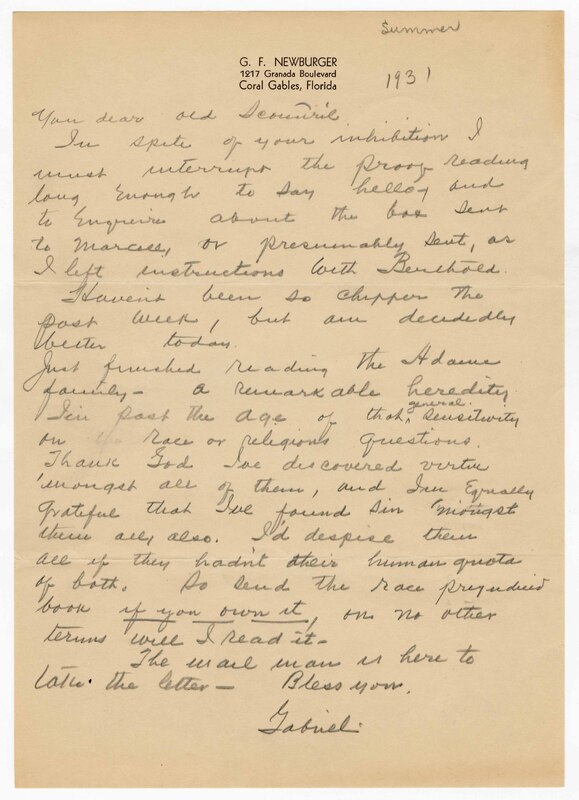 Summer
G. F. NEWBURGER
1217 Granada Boulevard
Coral Gables, Florida
1931
You dear old Scoundril
In spite of your inhibition I
must interrupt the proof reading
long enough to say hello, and
to enquire about the box sent
to Marcell, or presumably sent, as
I left instructions with Berthold.
Haven't been so chipper the
past week, but am decidedly
better today.
Just finished reading the Adams
family - a remarkable heredity.
I'm past the age of that general sensitivity
on race or religions questions.
Thank God I've discovered virtue
'mongst all of them, and I'm equally
grateful that I've found sin 'mongst
them all, also. I'd despise them
all if they hadn't their human quota
of both. So send the race prejudice
book if you own it, on no other
terms will I read it -
The mail man is here to
take the letter - Bless you.
Gabriel.